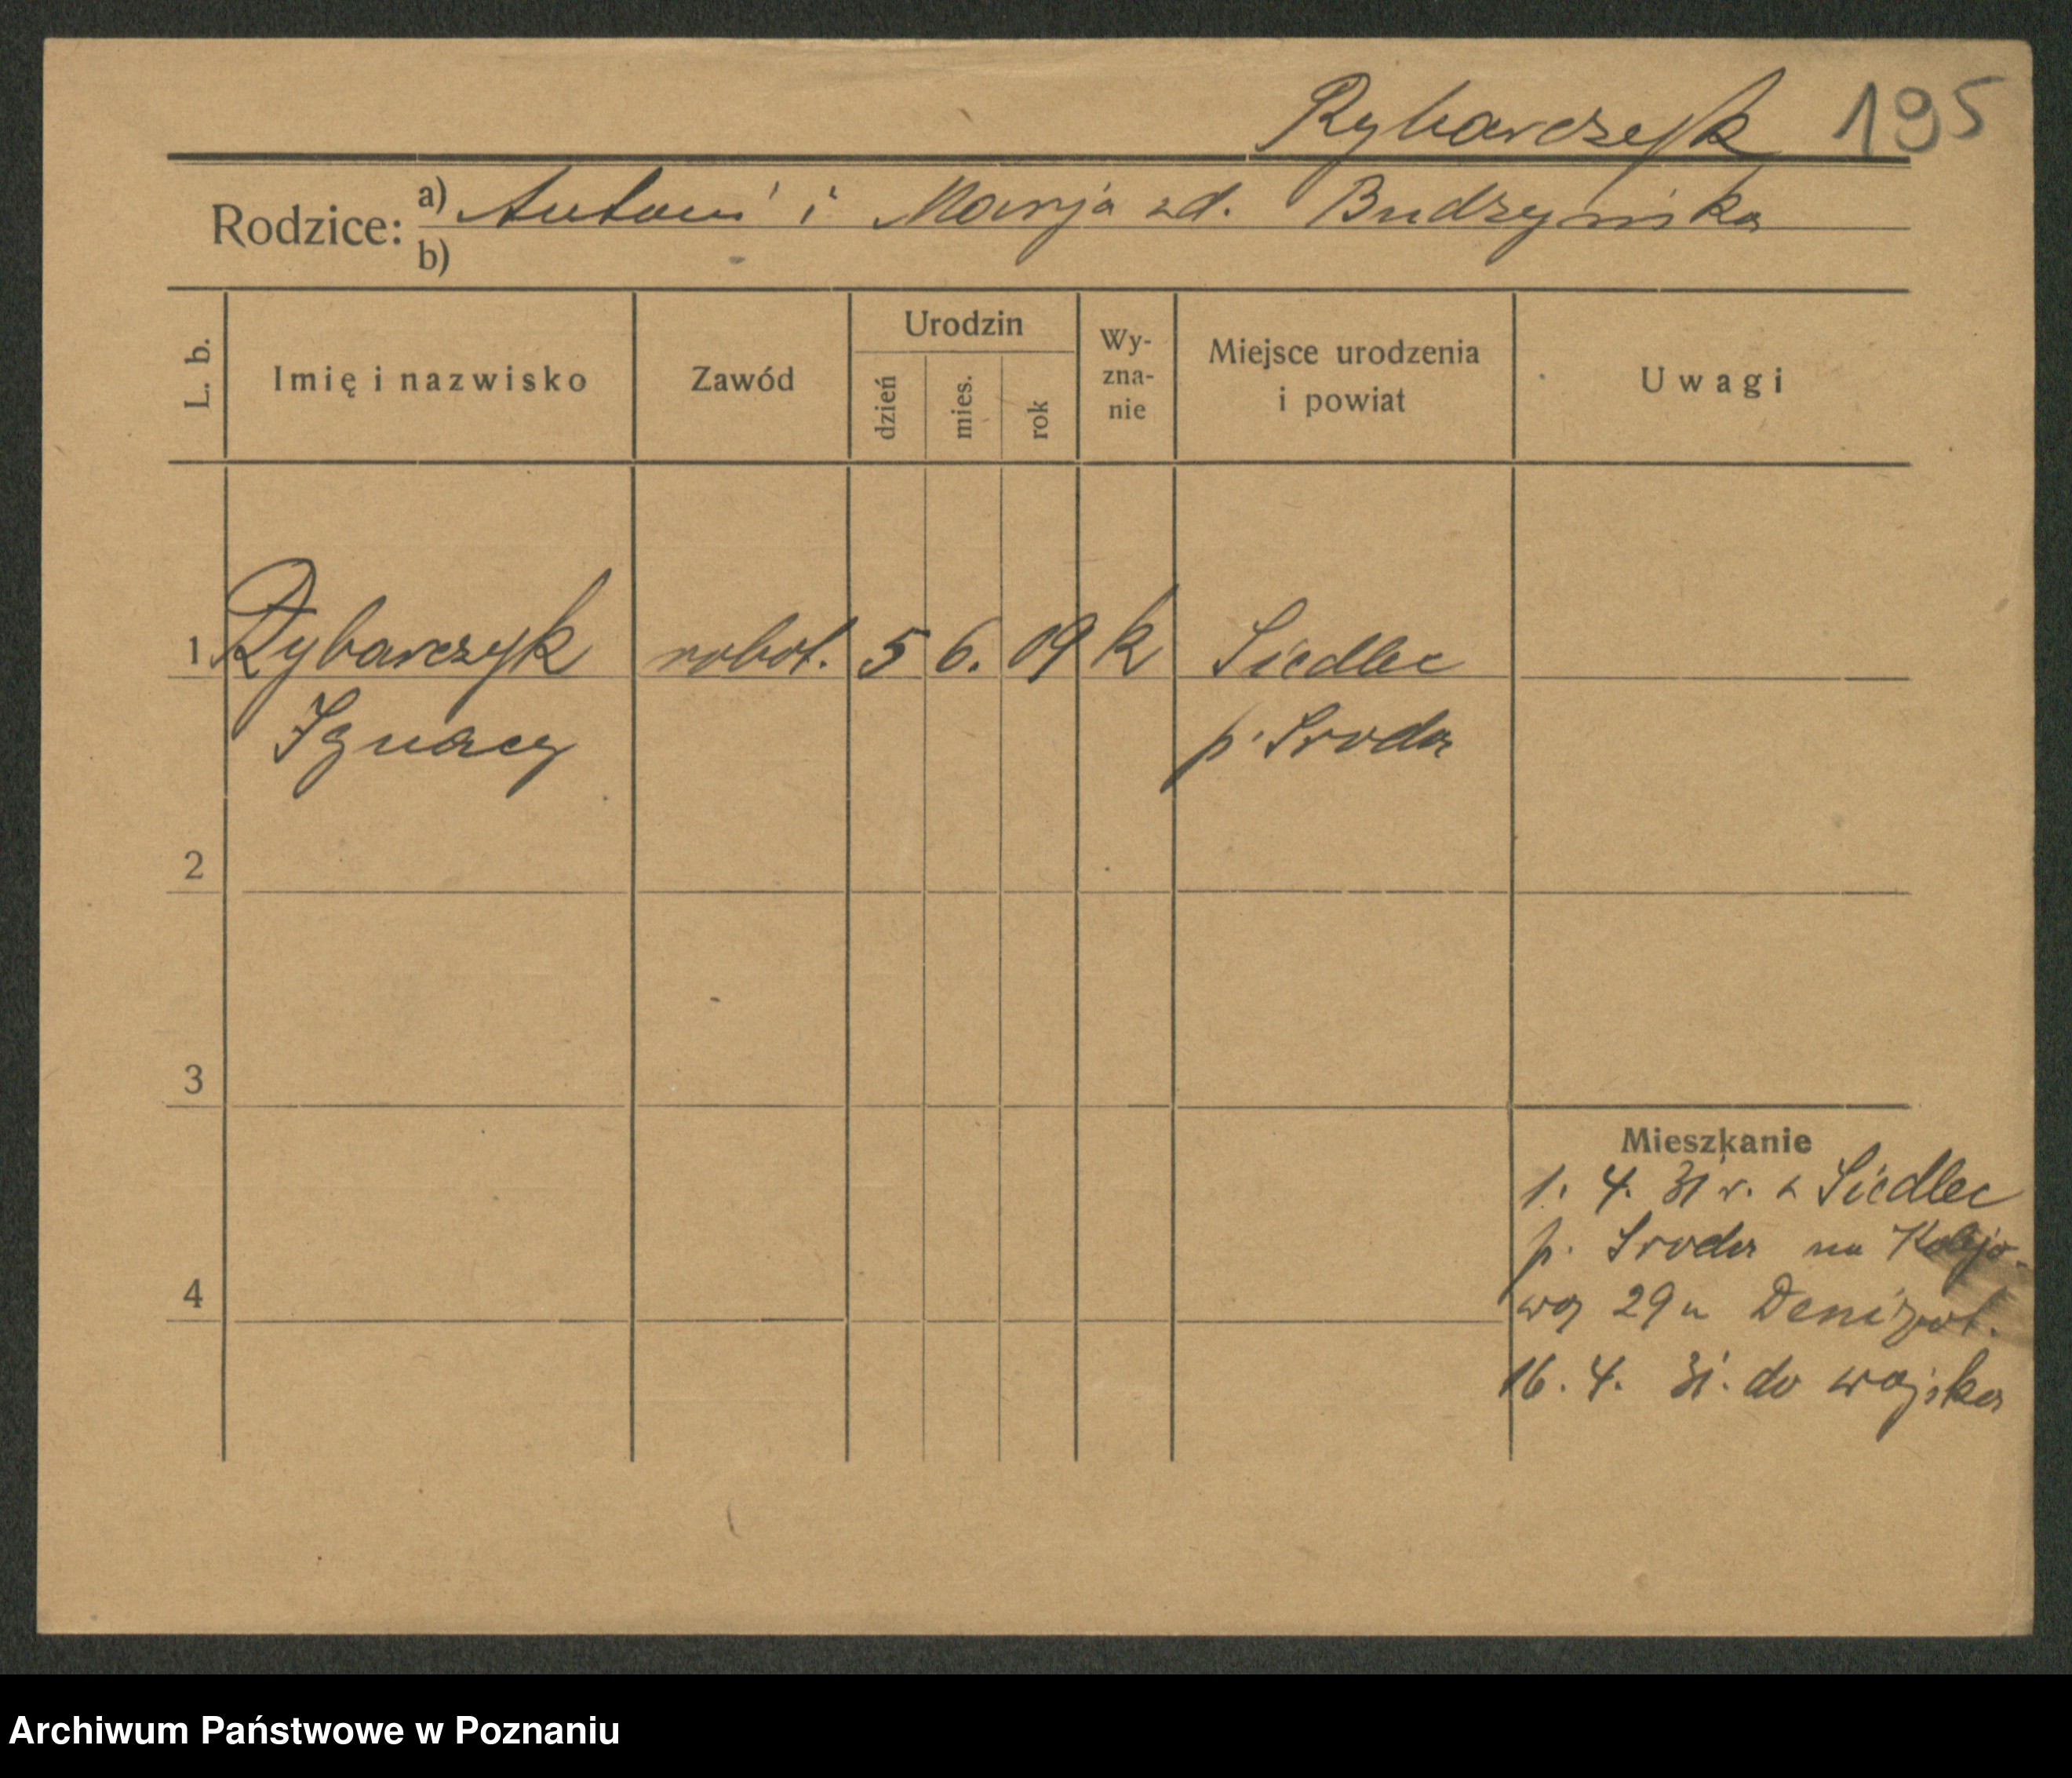 Rybarczyk 195
Rodzice: a) Antoni i Marja zd. Budzyńska
b)
L. b. Imię i nazwisko Zawód Urodzin dzień mies. rok Wy-zna-nie Miejsce urodzenia i powiat Uwagi
1 Rybarczyk robot. 5 6. 09 k Siedlec
Ignacy p. Sroda
2
3
Mieszkanie
1. 4. 31 r. z Siedlec
p. Sroda na Kolejo-
4
wą 29 u
16. 4. 31. do wojska
Archiwum Państwowe w Poznaniu